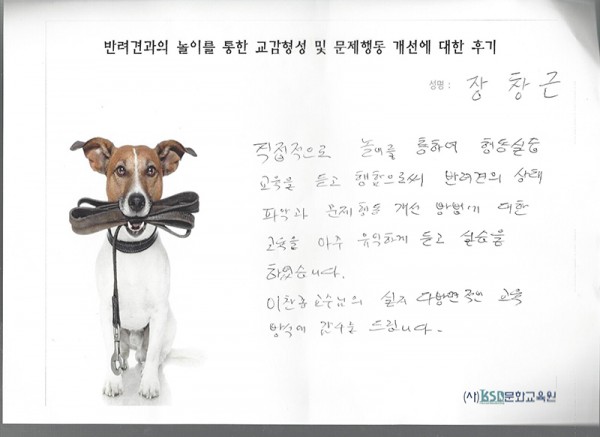 반려견과의 놀이를 통한 교감형성 및 문제행동 개선에 대한 후기
성명 : 장 창 근
직접적으로 놀이를 통하여 행동실습
교육을 듣고 행함으로써 반려견의 상태
파악과 문제행동 개선 방법에 대한
교육을 아주 유익하게 듣고 실습을
하였습니다.
이찬종교수님의 실지 다방면적인 교육
방식에 감사를 드립니다.
(사)KSD문화교육원